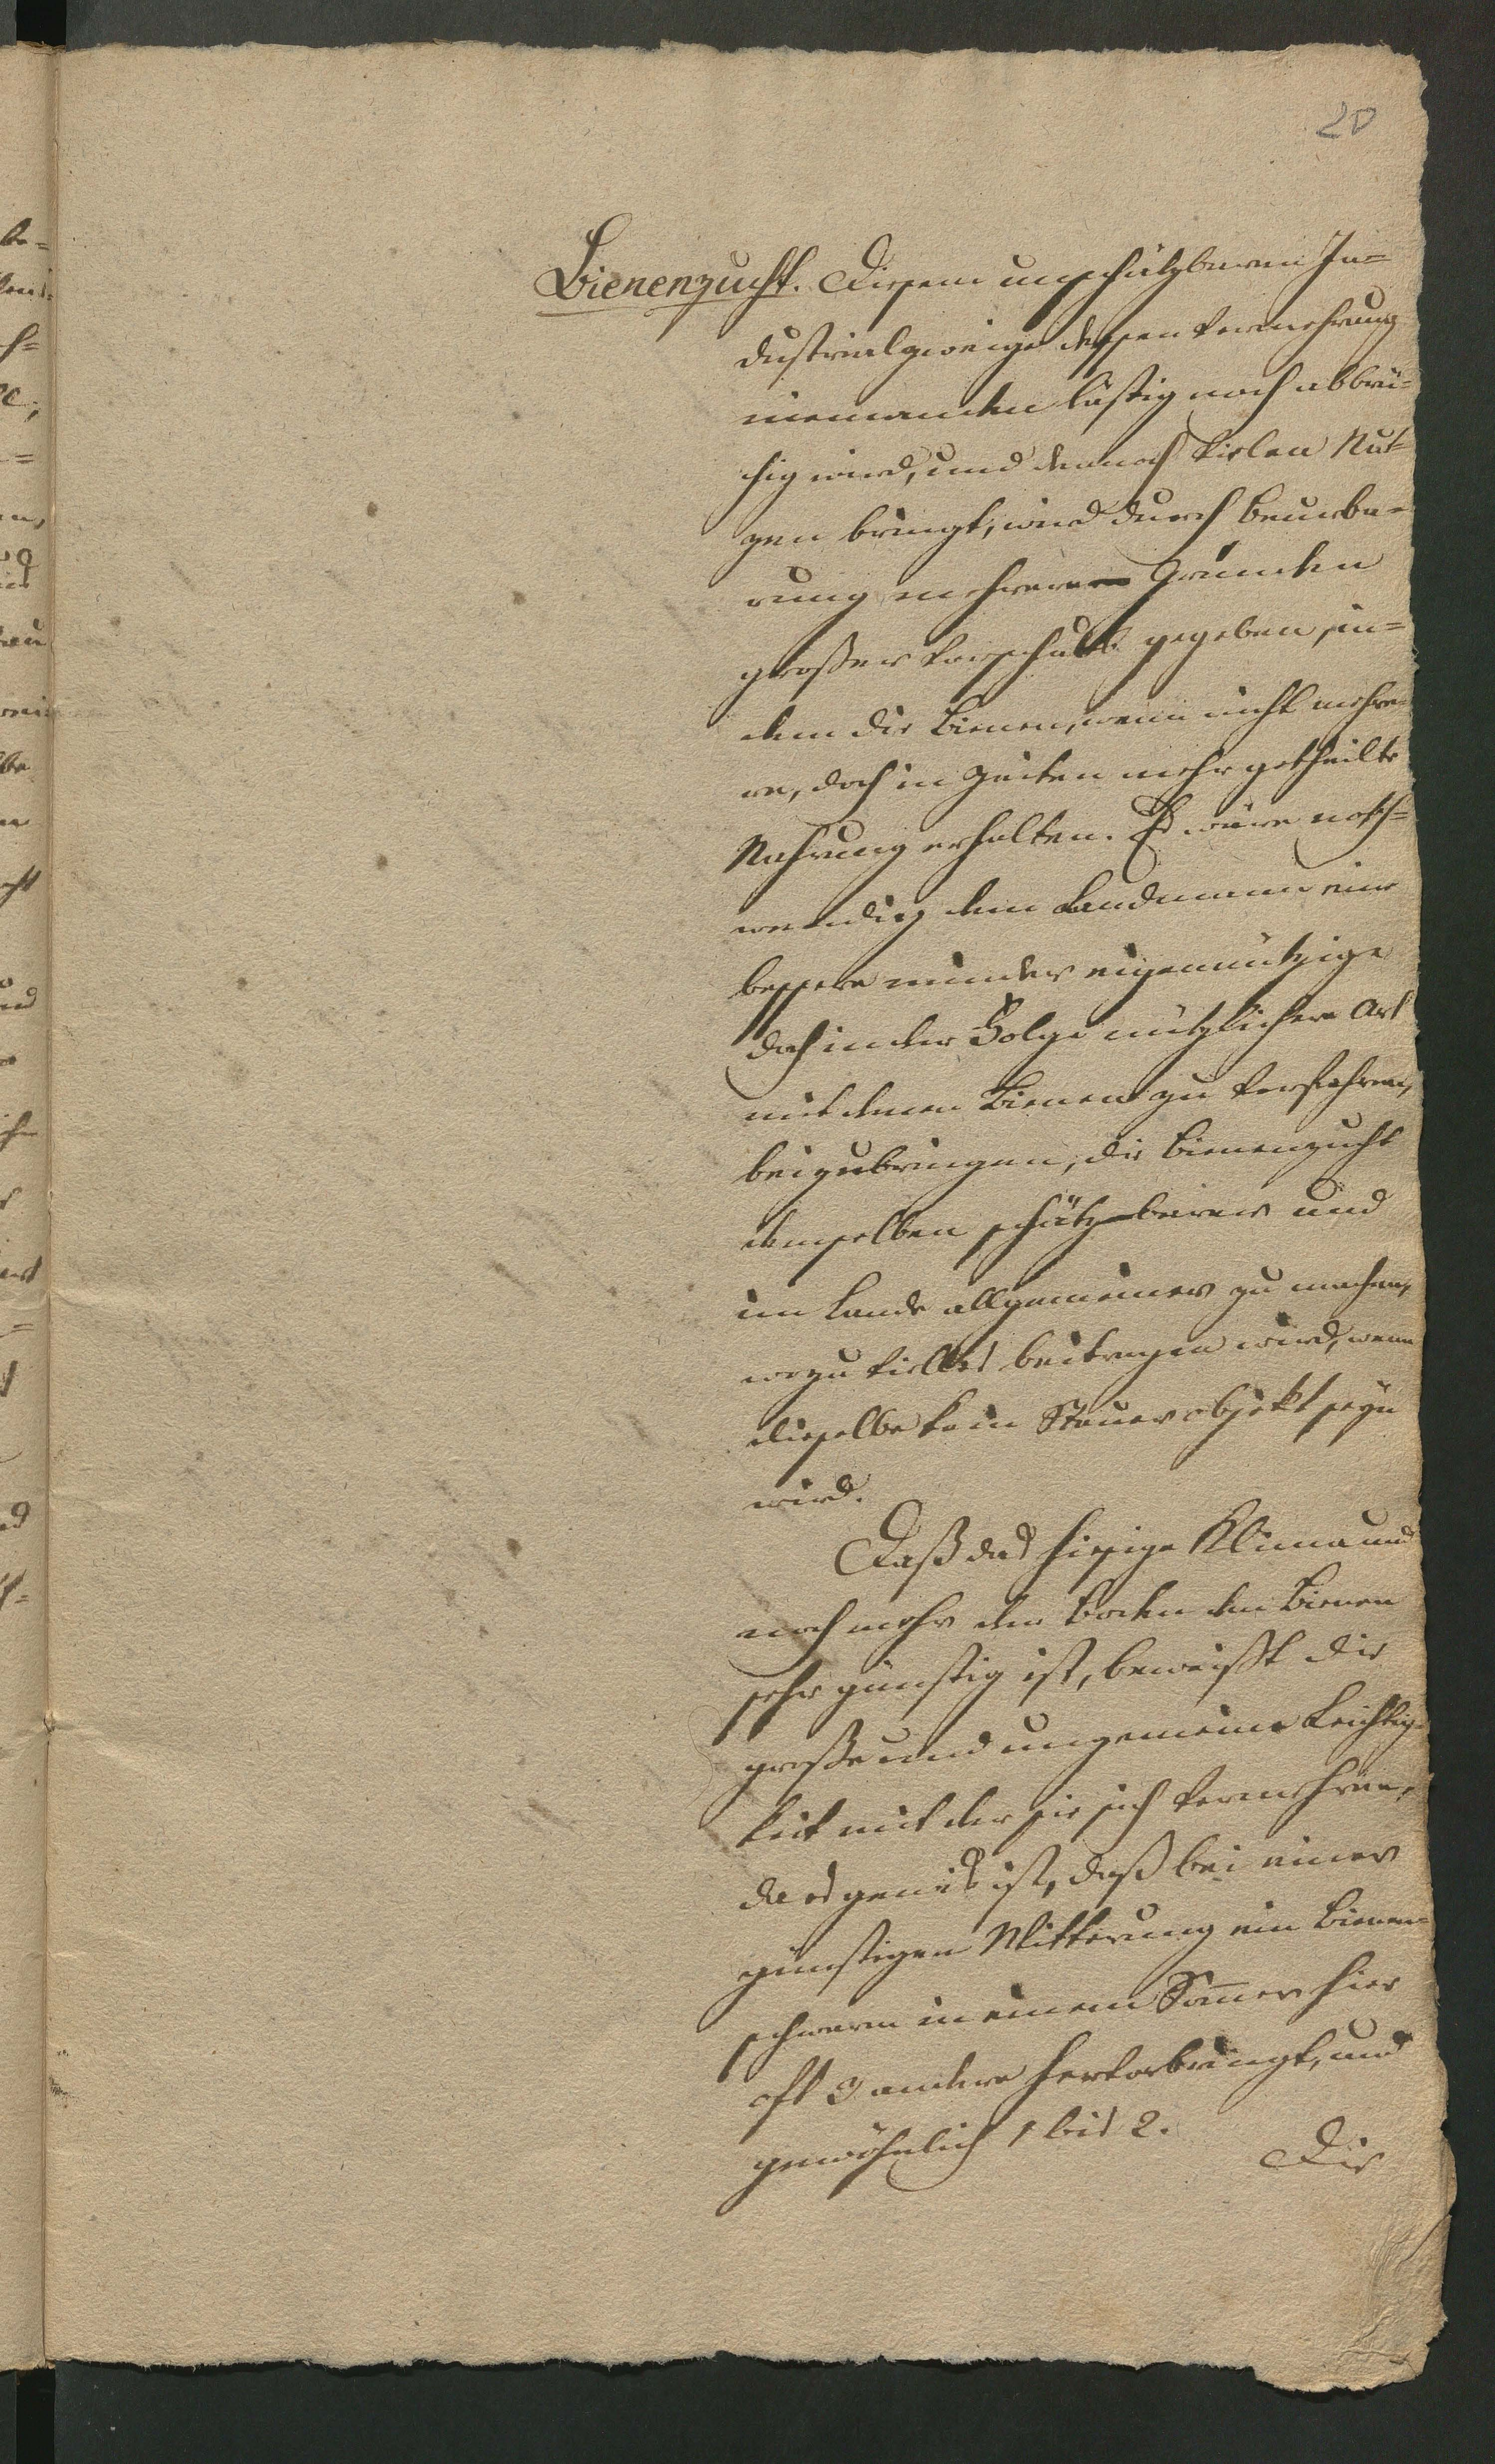 20
Bienenzucht. Diesem unschätzbaren In=
dustrialzweige dessen Vermehrung
niemanden lästig noch abbrü=
chig wird, und dennoch vielen Nut=
zen bringt, wird durch Beurba=
rung mehrerer Gründen
großer Vorschub gegeben, in=
dem die Bienen, wenn nicht mehre=
re, doch in Zeiten mehr getheilte
Nahrung erhalten. Es wäre noth=
wendig dem Landmann eine
bessere minder eigennützige
doch in der Folge nützlichere Art
mit denen Bienen zu verfahren,
beizubringen, die Bienenzucht
demselben schätzbarer und
im Lande allgemeiner zu machen,
wozu vielles beitragen wird, wenn
dieselbe kein Steuerobjekt seyn
wird.
Daß das hiesige Klima und
noch mehr der Boden den Bienen
sehr günstig ist, beweißt die
große und ungemeine Leichtig=
keit mit der sie sich vermehren,
da es gewiß ist, daß bei einer
günstigen Witterung ein Bienen=
schwarm in einem Sommer hier
oft 3 andere hervorbringt, und
gewöhnlich 1 bis 2.
Die